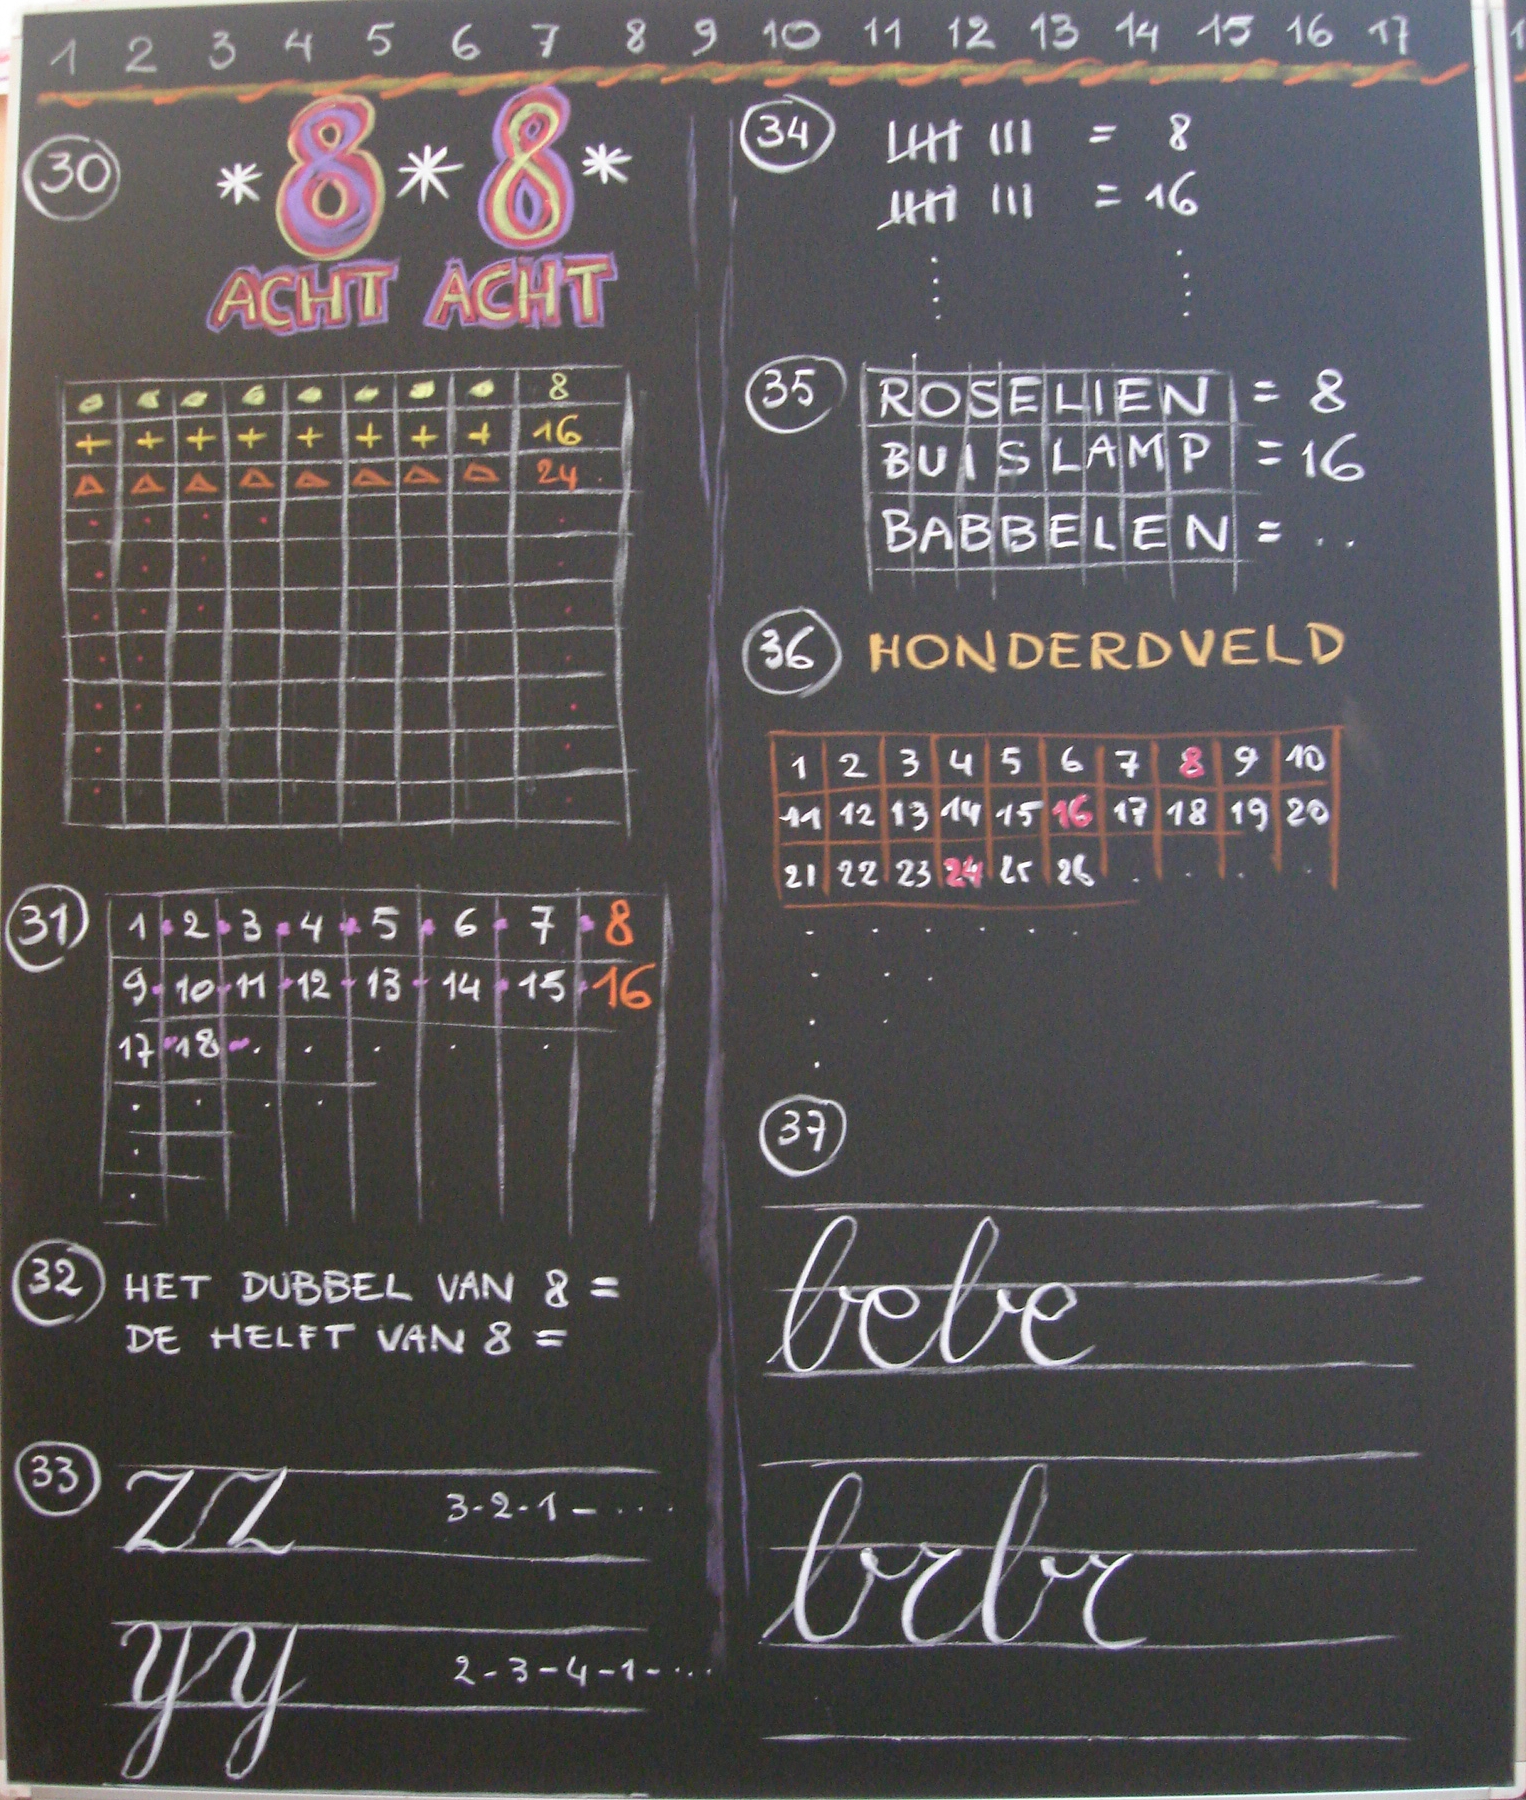 1 2 3 4 5 6 7 8 9 10 11 12 13 14 15 16 17
30
* 8 * 8 *
ACHT ACHT
8
+ + + + + + + + 16
24
31
1 2 3 4 5 6 7 8
9 10 11 12 13 14 15 16
17 18 . . . . .
32
HET DUBBEL VAN 8 =
DE HELFT VAN 8 =
33
zz 3-2-1-....
yy 2-3-4-1-....
34
|||| ||| = 8
|||| ||| = 16
35
ROSELIEN = 8
BUISLAMP = 16
BABBELEN = ..
36
HONDERDVELD
1 2 3 4 5 6 7 8 9 10
11 12 13 14 15 16 17 18 19 20
21 22 23 24 25 26 . . . .
37
bebe
brbr